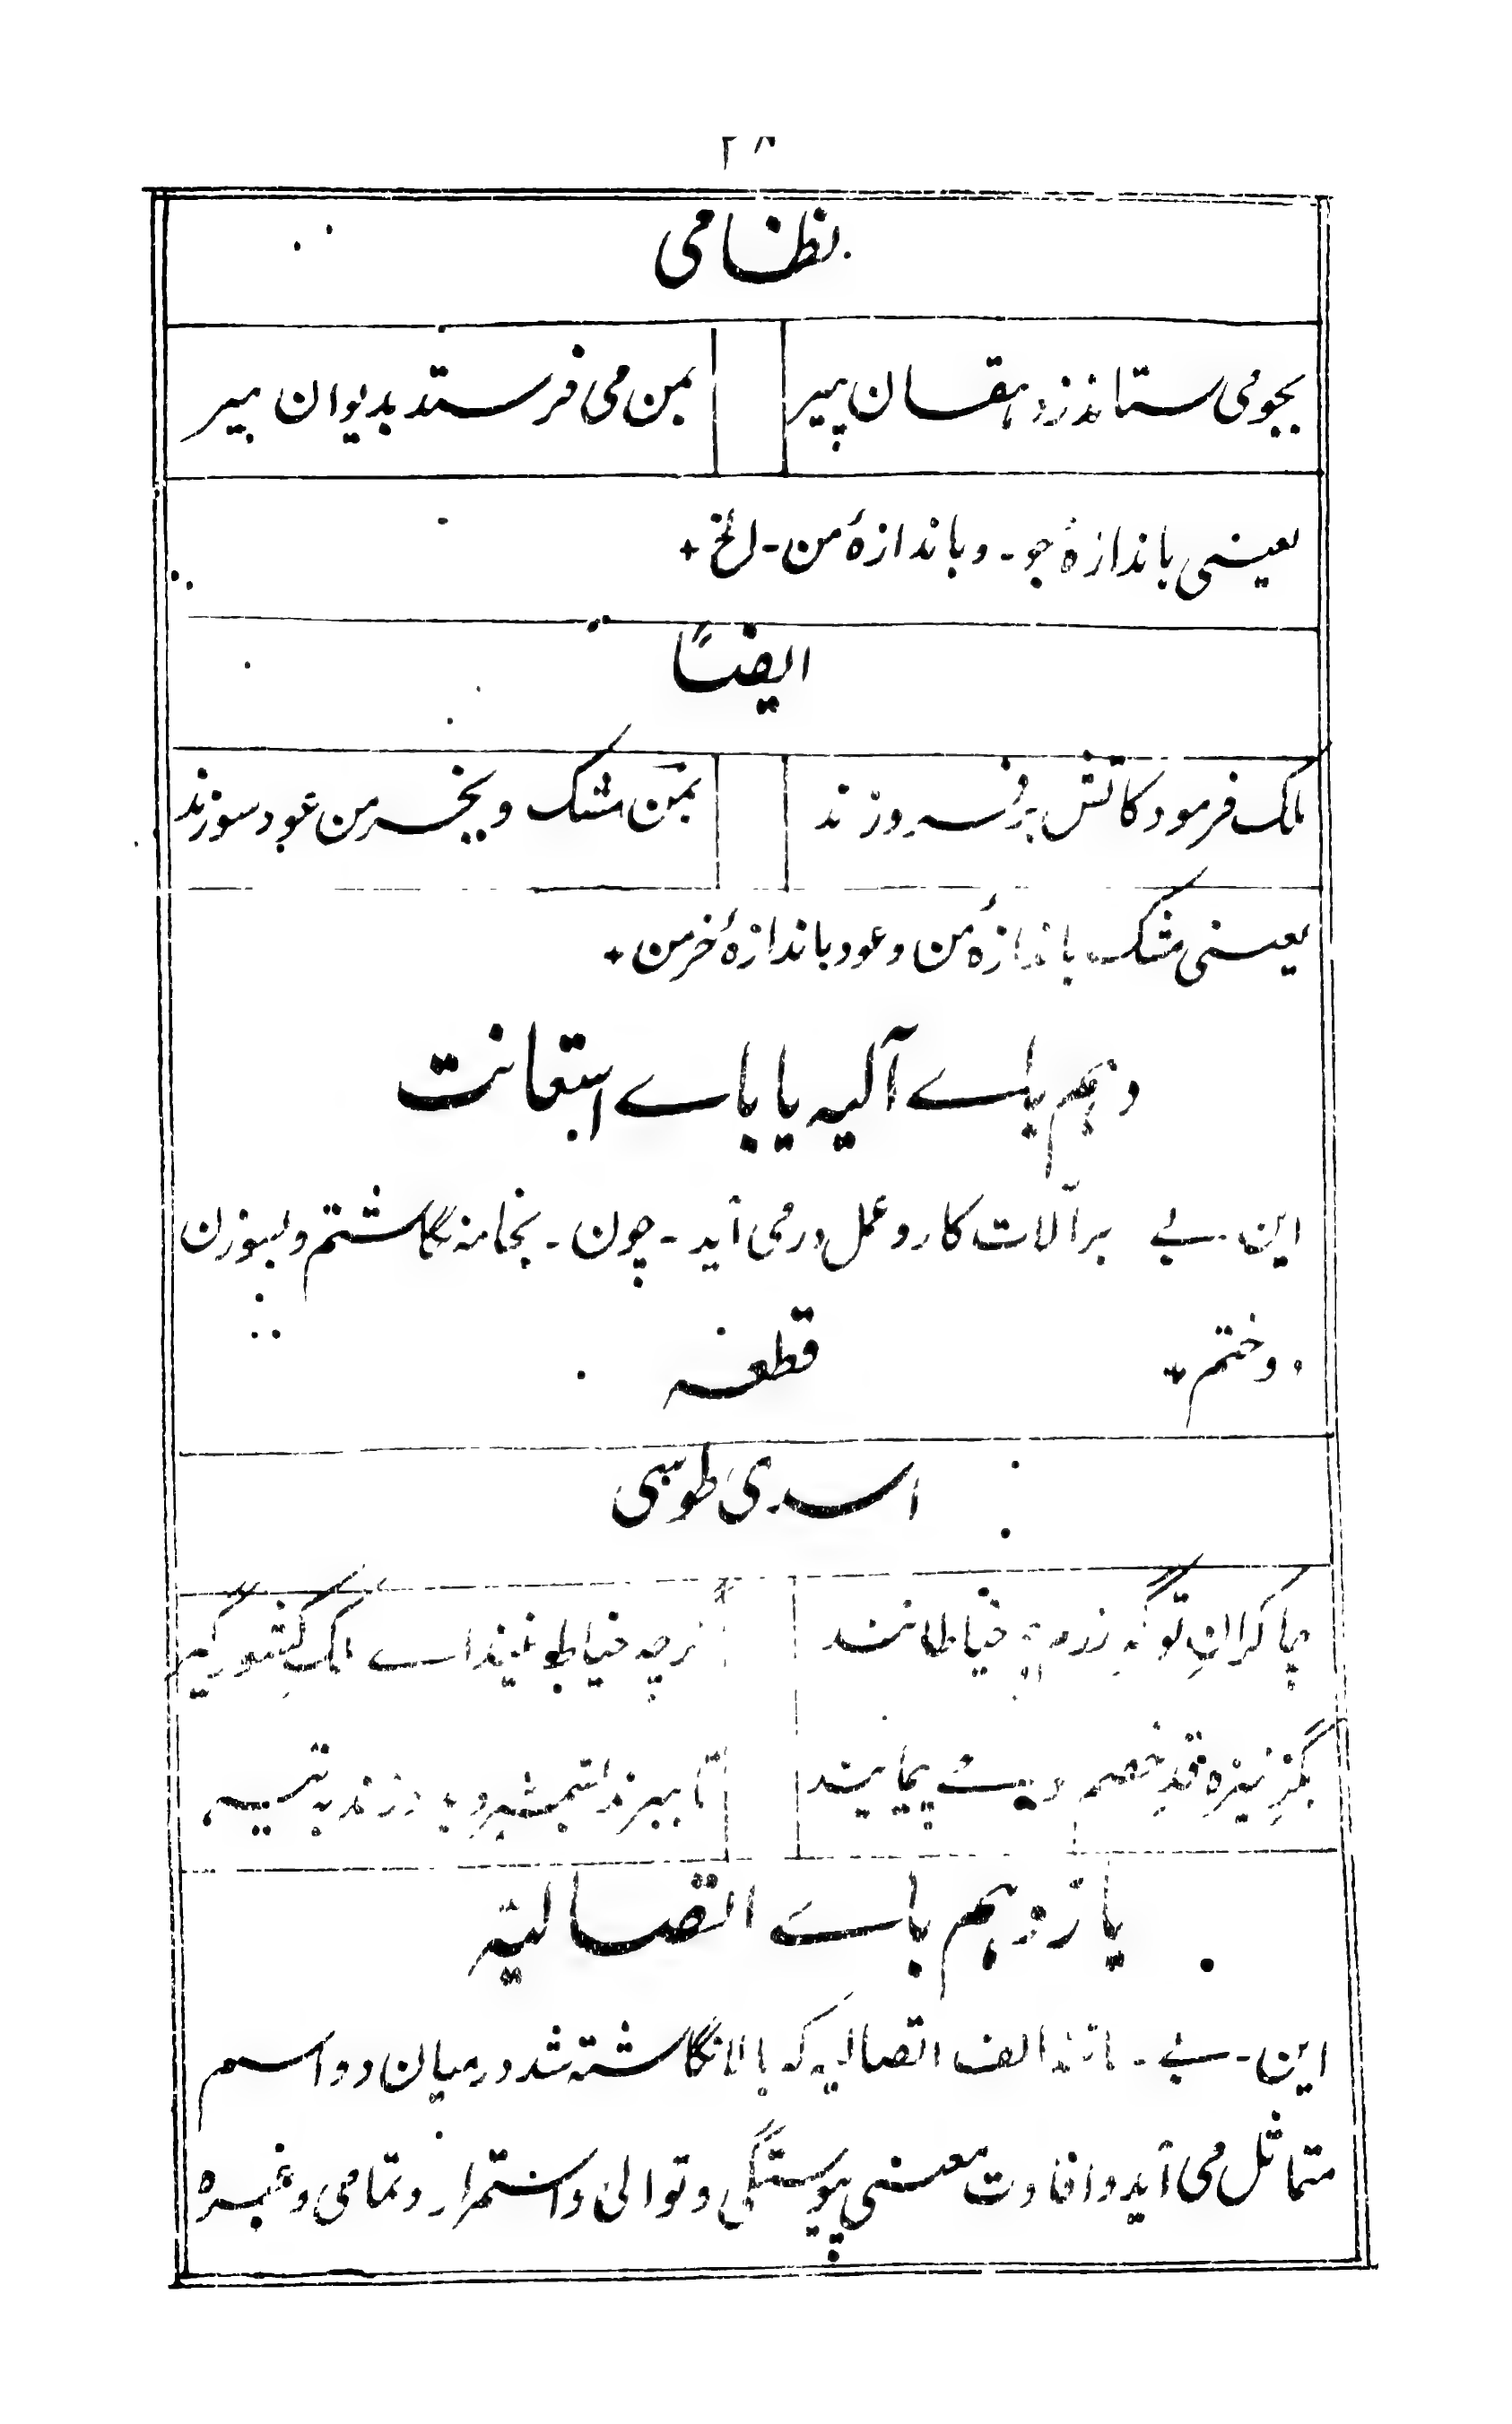 ۲۸
نظامی
بجومی ستاند ز دهقان پیر بمن می فرستد بدیوان میر
یعنی باندازهٔ جو ـ و باندازهٔ من ـ الخ +
ایضاً
ملک فرمود کاتش برفروزند بمن مشک و بخرمن عود سوزند
یعنی مشک باندازهٔ من و عود باندازهٔ خرمن +
دہم باے آلیہ یا باے استعانت
این ـ بے بر آلات کار و عمل درمی آید ـ چون ـ بخامہ نگاشتم و بسوزن
دوختم + قطعہ
اسدی طوسی
چاکرانِ تو گہِ رزم چو خیاطانند گرچہ خیاط نیند اے ملکِ کشور گیر
بگزِ نیزہ قدِ خصمِ تو می پیمایند تا ببرند بشمشیر و بدوزند بہ تیر
یازدہم باے اتصالیہ
این ـ بے ـ مانند الف اتصالیہ کہ بالا نگاشتہ شد درمیان دو اسم
متماثل می آید و افادت معنی پیوستگی و توالی و استمرار و تمامی و غیرہ